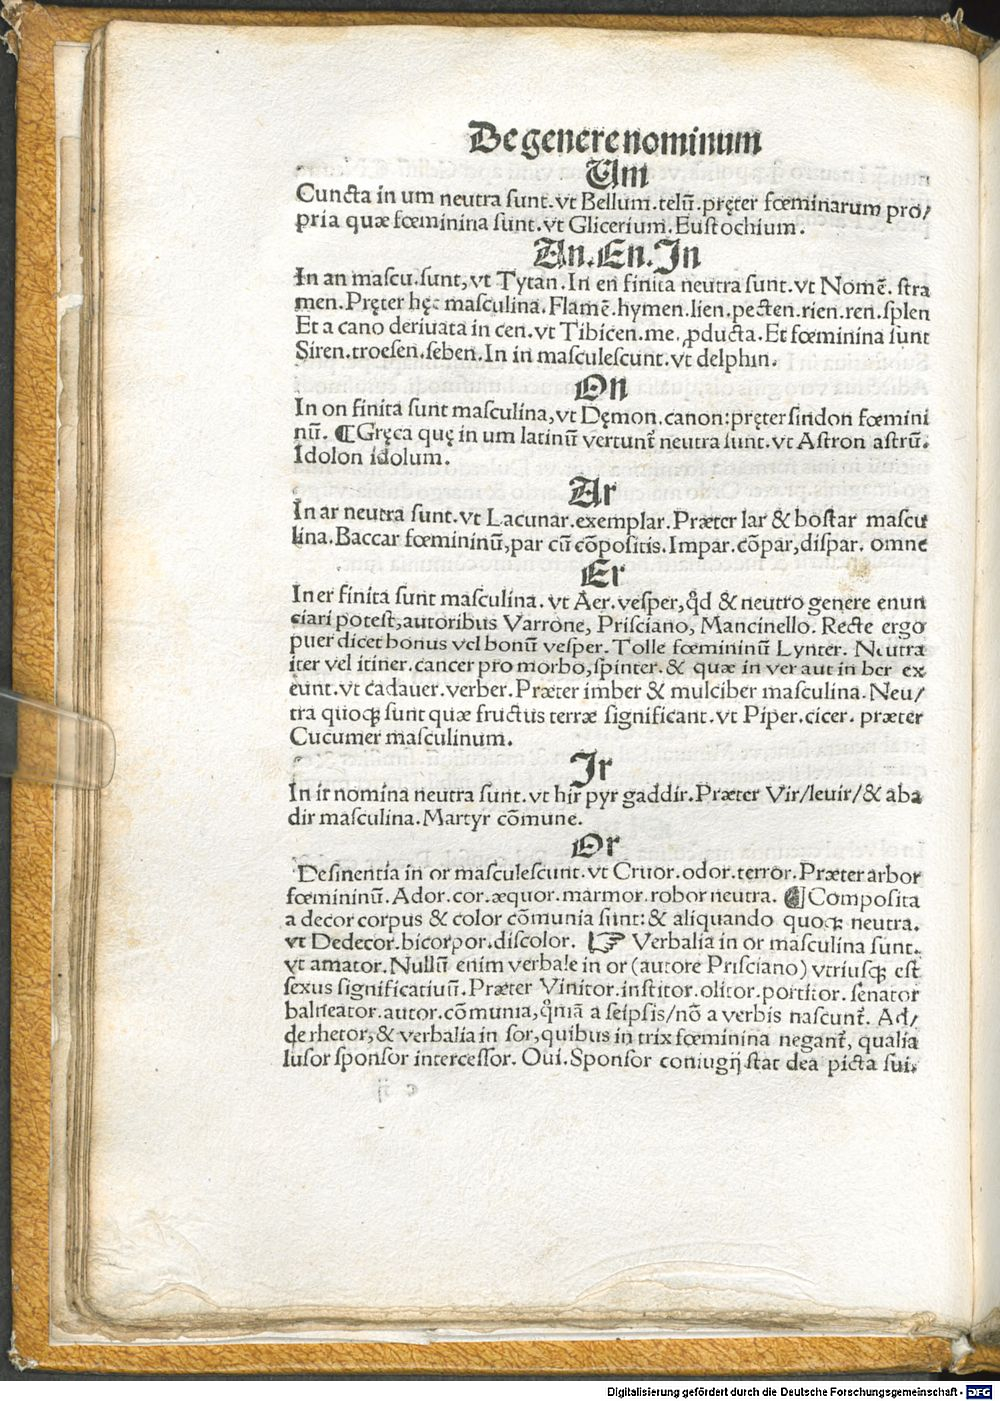 De genere nominum
Um
Cuncta in um neutra sunt. vt Bellum. telū. pręter fœminarum pro/
pria quæ fœminina sunt. vt Glicerium. Eustochium.
An. En. In
In an mascu. sunt, vt Tytan. In en finita neutra sunt. vt Nomē. stra
men. Pręter hęc masculina. Flamē. hymen. lien. pecten. rien. ren. splen
Et a cano deriuata in cen. vt Tibicen. me. ꝓducta. Et fœminina sunt
Siren. troesen. seben. In in masculescunt. vt delphin.
On
In on finita sunt masculina, vt Dęmon. canon: pręter sindon fœmini
nū. ¶ Gręca quę in um latinū vertunt̃ neutra sunt. vt Astron astrū.
Idolon idolum.
Ar
In ar neutra sunt. vt Lacunar. exemplar. Præter lar & bostar mascu
lina. Baccar fœmininū, par cū cōpositis. Impar. cōpar, dispar. omne
Er
In er finita sunt masculina. vt Aer. vesper, qd̃ & neutro genere enun
ciari potest, autoribus Varrone, Prisciano, Mancinello. Recte ergo
puer dicet bonus vel bonū vesper. Tolle fœmininū Lynter. Neutra
iter vel itiner. cancer pro morbo, spinter. & quæ in ver aut in ber ex
eunt. vt cadauer. verber. Præter imber & mulciber masculina. Neu/
tra quoqꝫ sunt quæ fructus terræ significant. vt Piper. cicer. præter
Cucumer masculinum.
Ir
In ir nomina neutra sunt. vt hir pyr gaddir. Præter Vir/leuir/& aba
dir masculina. Martyr cōmune.
Or
Desinentia in or masculescunt. vt Cruor. odor. terror. Præter arbor
fœmininū. Ador. cor. æquor. marmor. robor neutra. ¶ Composita
a decor corpus & color cōmunia sunt: & aliquando quoqꝫ neutra.
vt Dedecor. bicorpor. discolor. ☞ Verbalia in or masculina sunt.
vt amator. Nullū enim verbale in or (autore Prisciano) vtriusqꝫ est
sexus significatiuū. Præter Vinitor. institor. olitor. portitor. senator
balneator. autor. cōmunia, qm̃iā a seipsis/nō a verbis nascunt̃. Ad/
de rhetor, & verbalia in sor, quibus in trix fœminina negant̃, qualia
lusor sponsor intercessor. Oui. Sponsor coniugij stat dea picta sui.
Digitalisierung gefördert durch die Deutsche Forschungsgemeinschaft - DFG